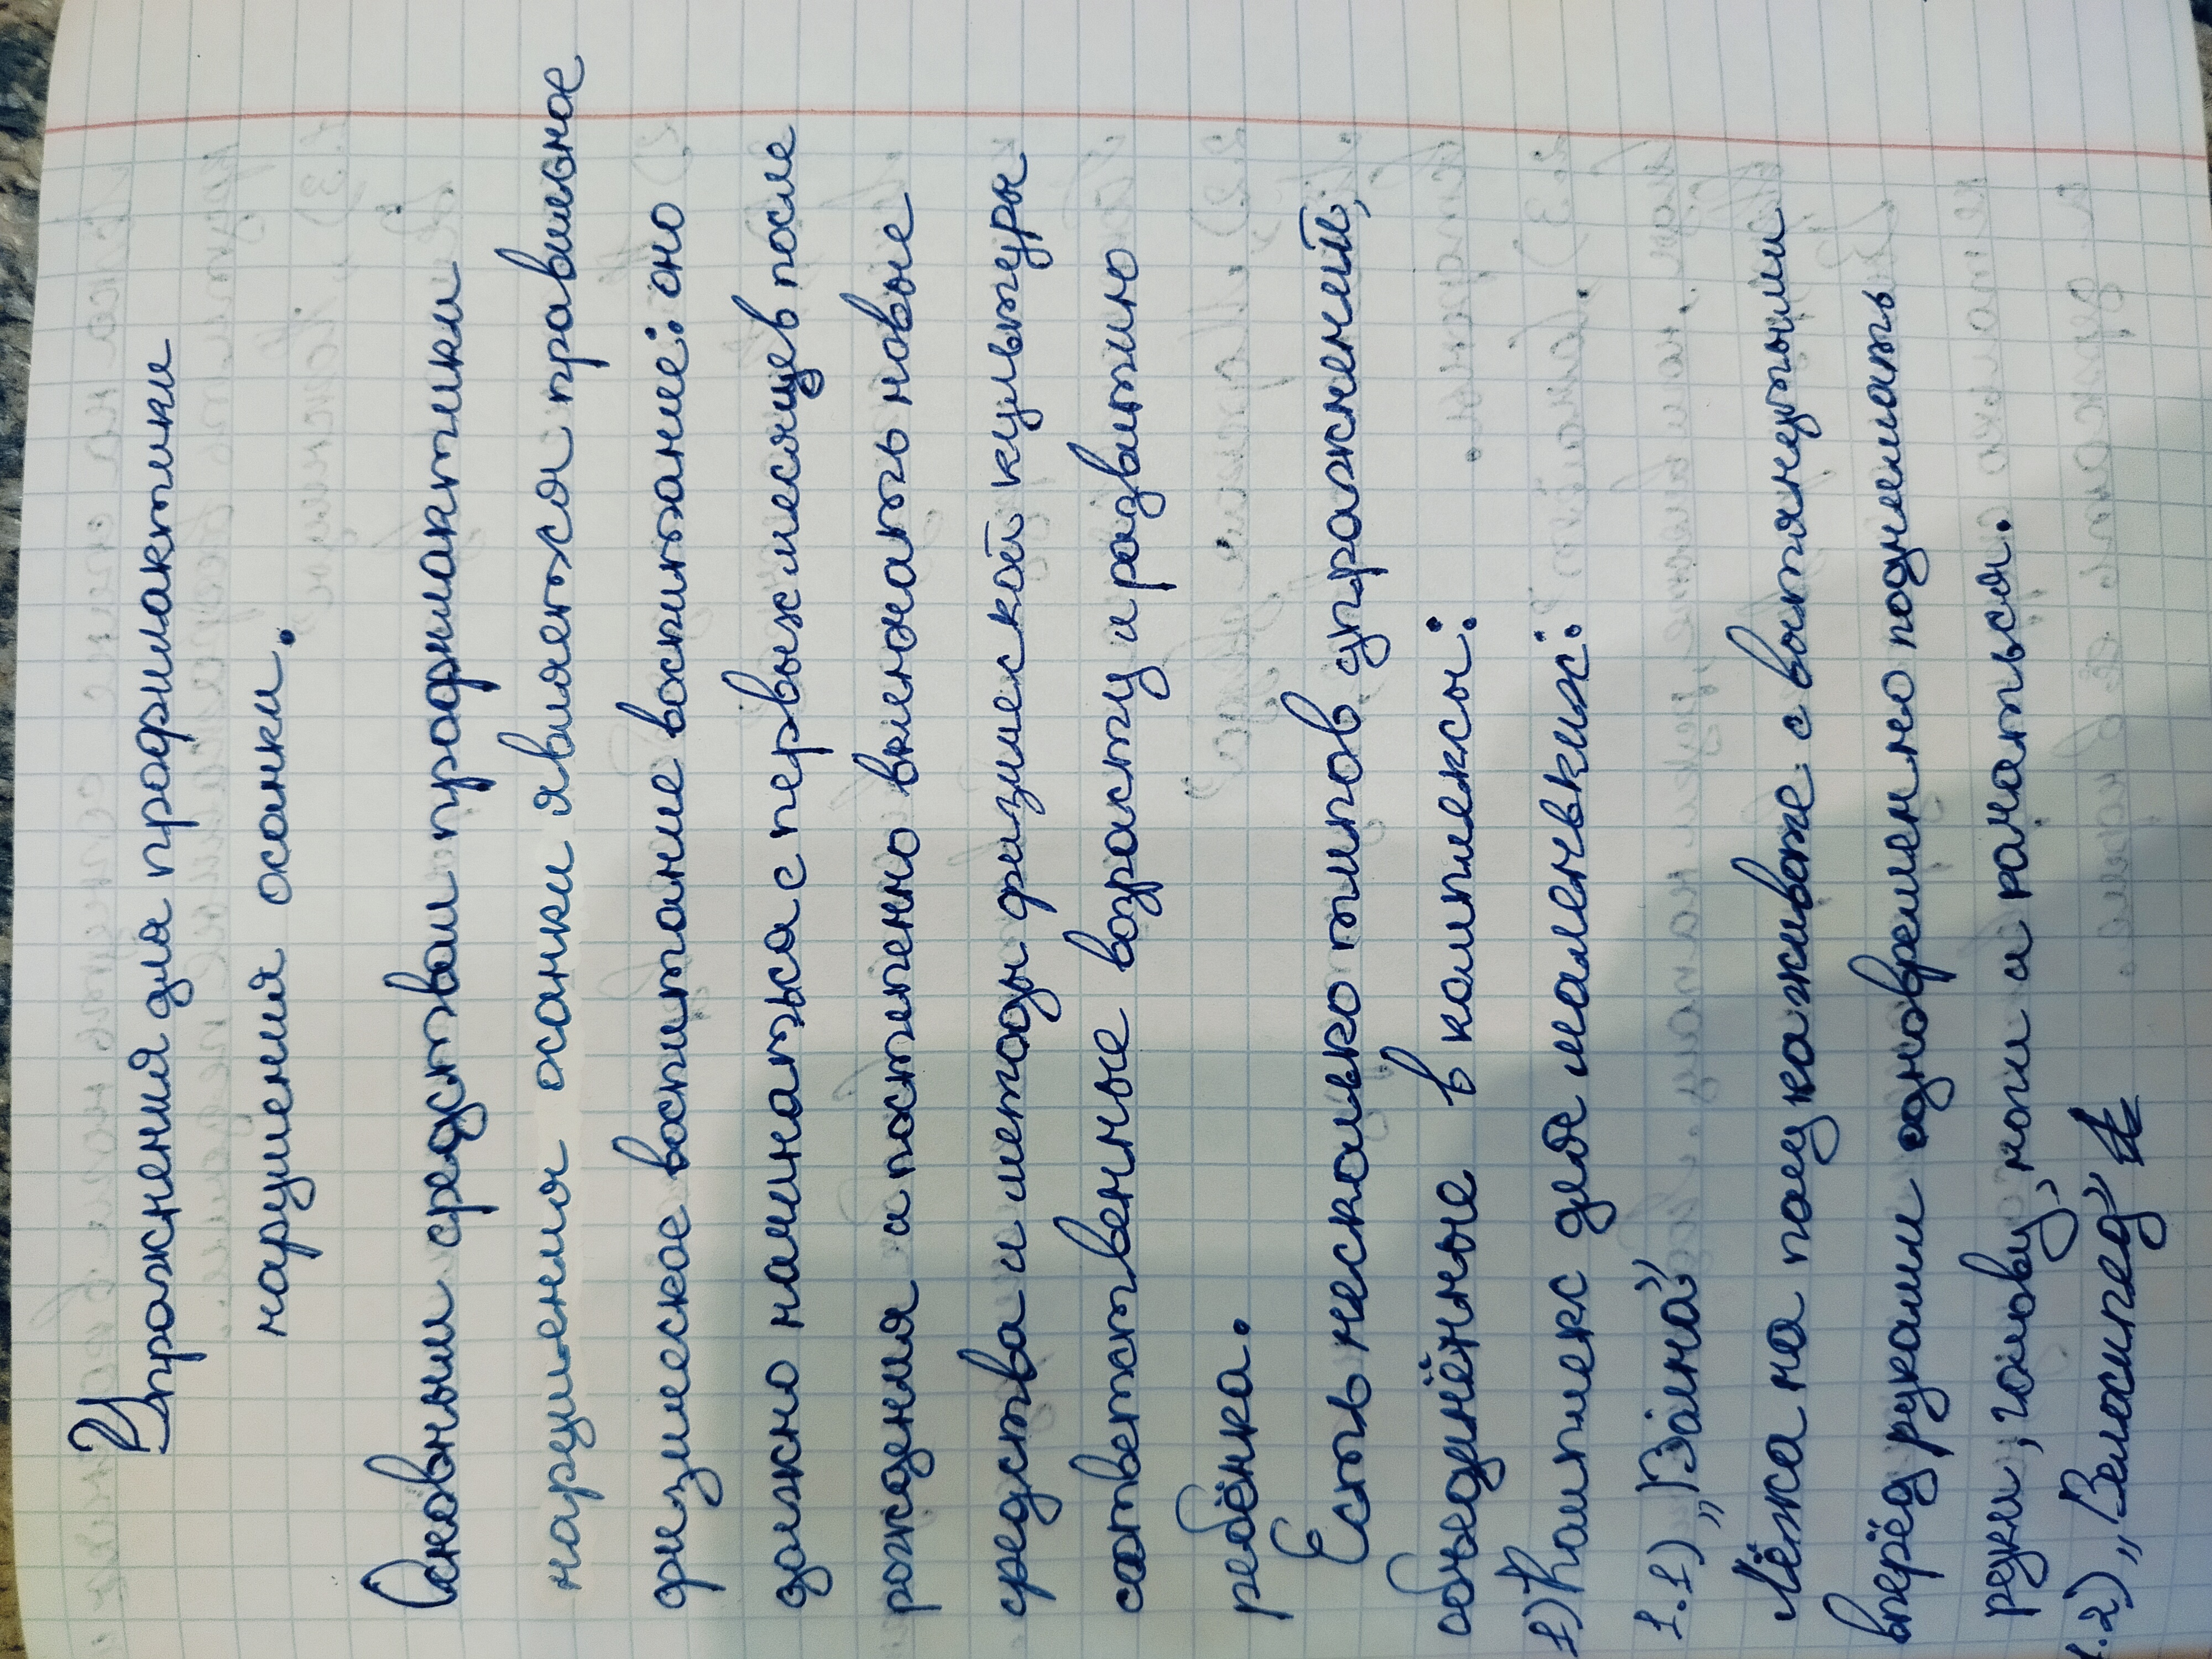 Упражнения для профилактики
нарушения осанки.
Основным средством профилактики
нарушения осанки является правильное
физическое воспитание воспитание: оно
должно начинаться с первых месяцев после
рождения и постепено включать новые
средства и методы физической культуры
соответственные возрасту и развитию
ребёнка.
Есть несколько типов упражнений,
объединённые в комплексы:
1) Комплекс для маленьких:
1.1) „Волна"
Лёжа на полу на животе с вытянутыми
вперёд руками одновременно поднимать
руки, голову, ноги и качаться.
1.2) „Велосипед"